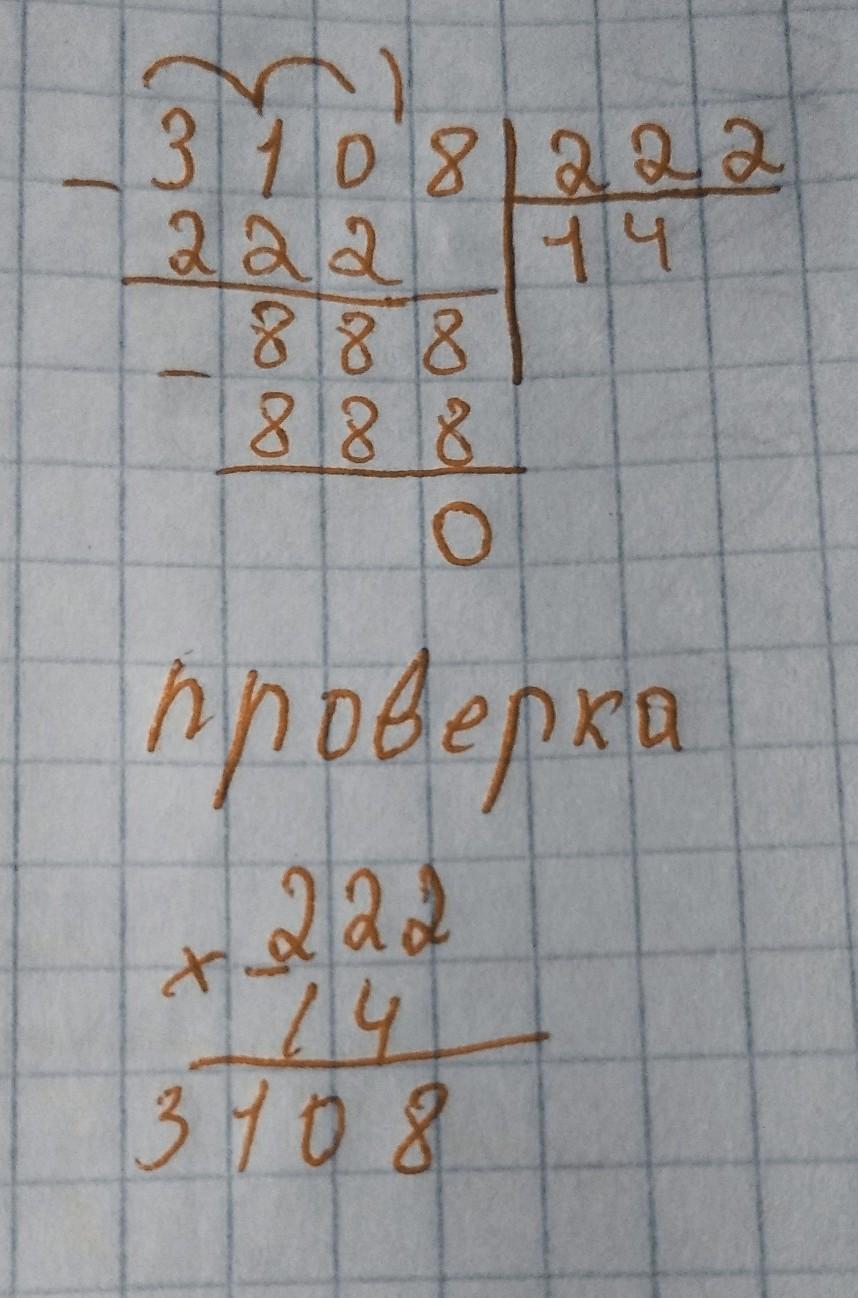 - 3108 | 222
222 | 14
- 888
888
0
проверка
× 222
14
3108